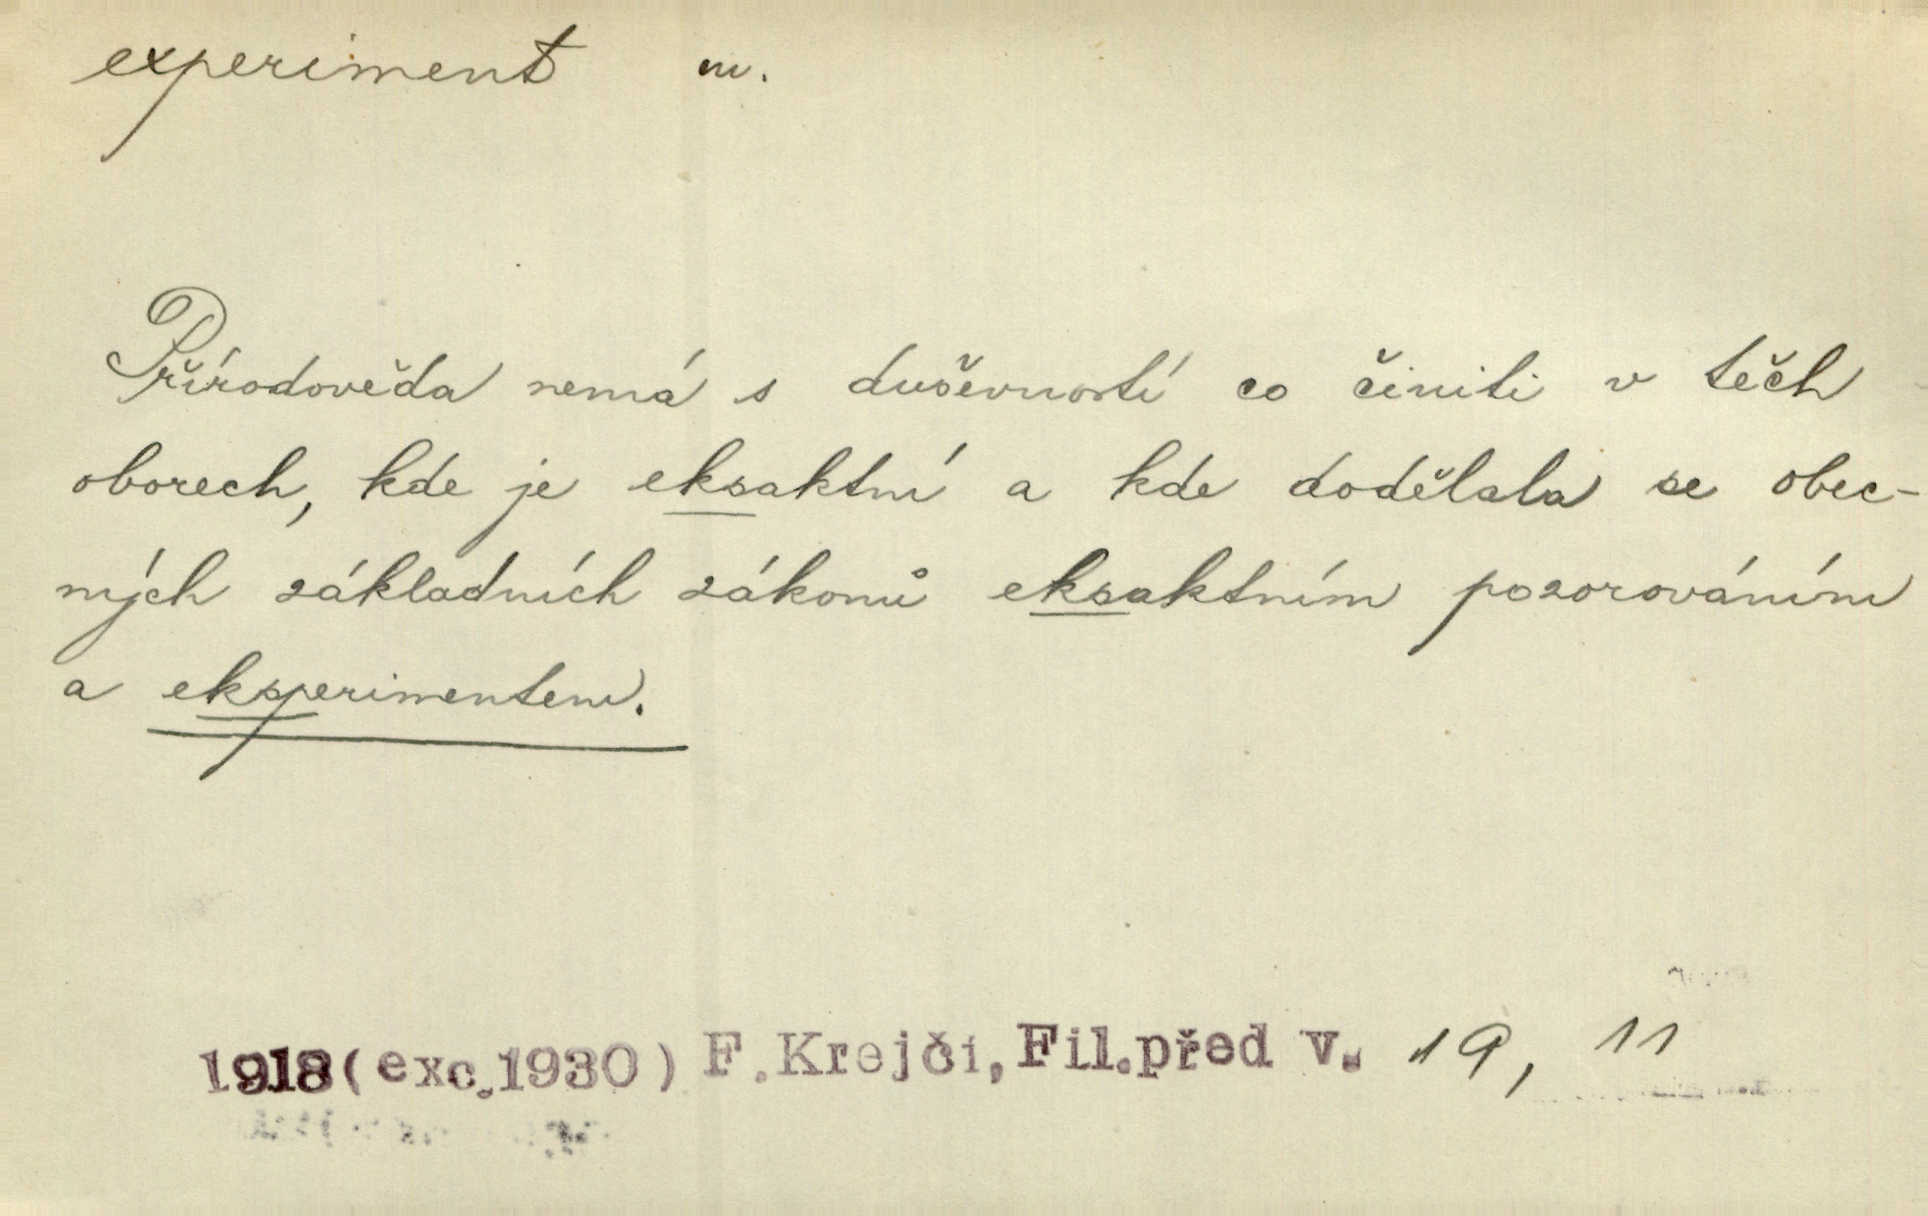 experiment m.
Přírodověda nemá s duševností co činiti v těch
oborech, kde je eksaktní a kde dodělala se obec-
ných základních zákonů eksaktním pozorováním
a eksperimentem.
1918 (exc. 1930) F. Krejčí, Fil. před v. 19, 11